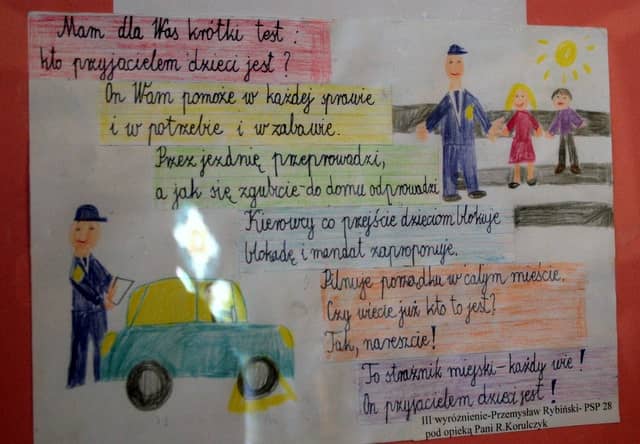 Mam dla Was krótki test:
kto przyjacielem dzieci jest?
On Wam pomoże w każdej sprawie
i w potrzebie i w zabawie.
Przez jezdnię przeprowadzi,
a jak się zgubicie - do domu odprowadzi
Kierowcy co przejście dzieciom blokuje
blokadę i mandat zaproponuje.
Pilnuje porządku w całym mieście.
Czy wiecie już kto to jest?
Tak, nareszcie!
To strażnik miejski - każdy wie!
On przyjacielem dzieci jest!
III wyróżnienie-Przemysław Rybiński- PSP 28
pod opieką Pani R.Korulczyk